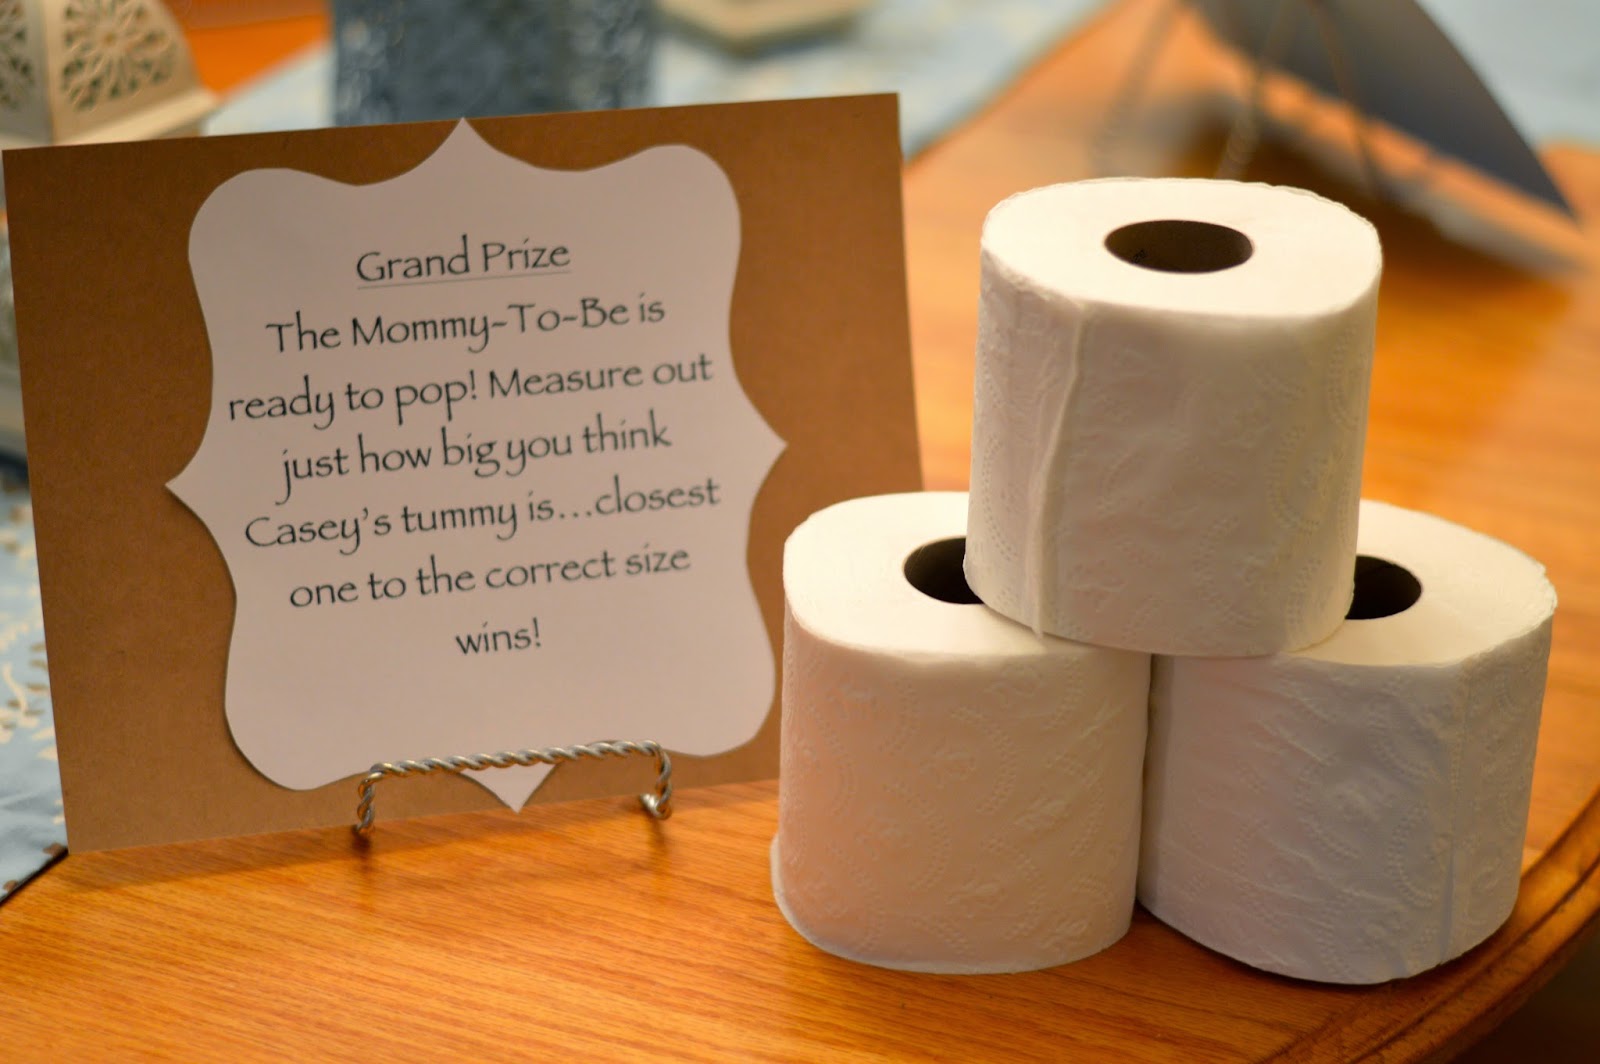 Grand Prize
The Mommy-To-Be is
ready to pop! Measure out
just how big you think
Casey's tummy is...closest
one to the correct size
wins!